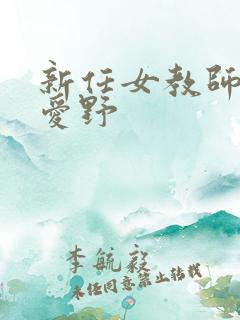 新任女教師
愛野
李航毅
未经同意禁止转载